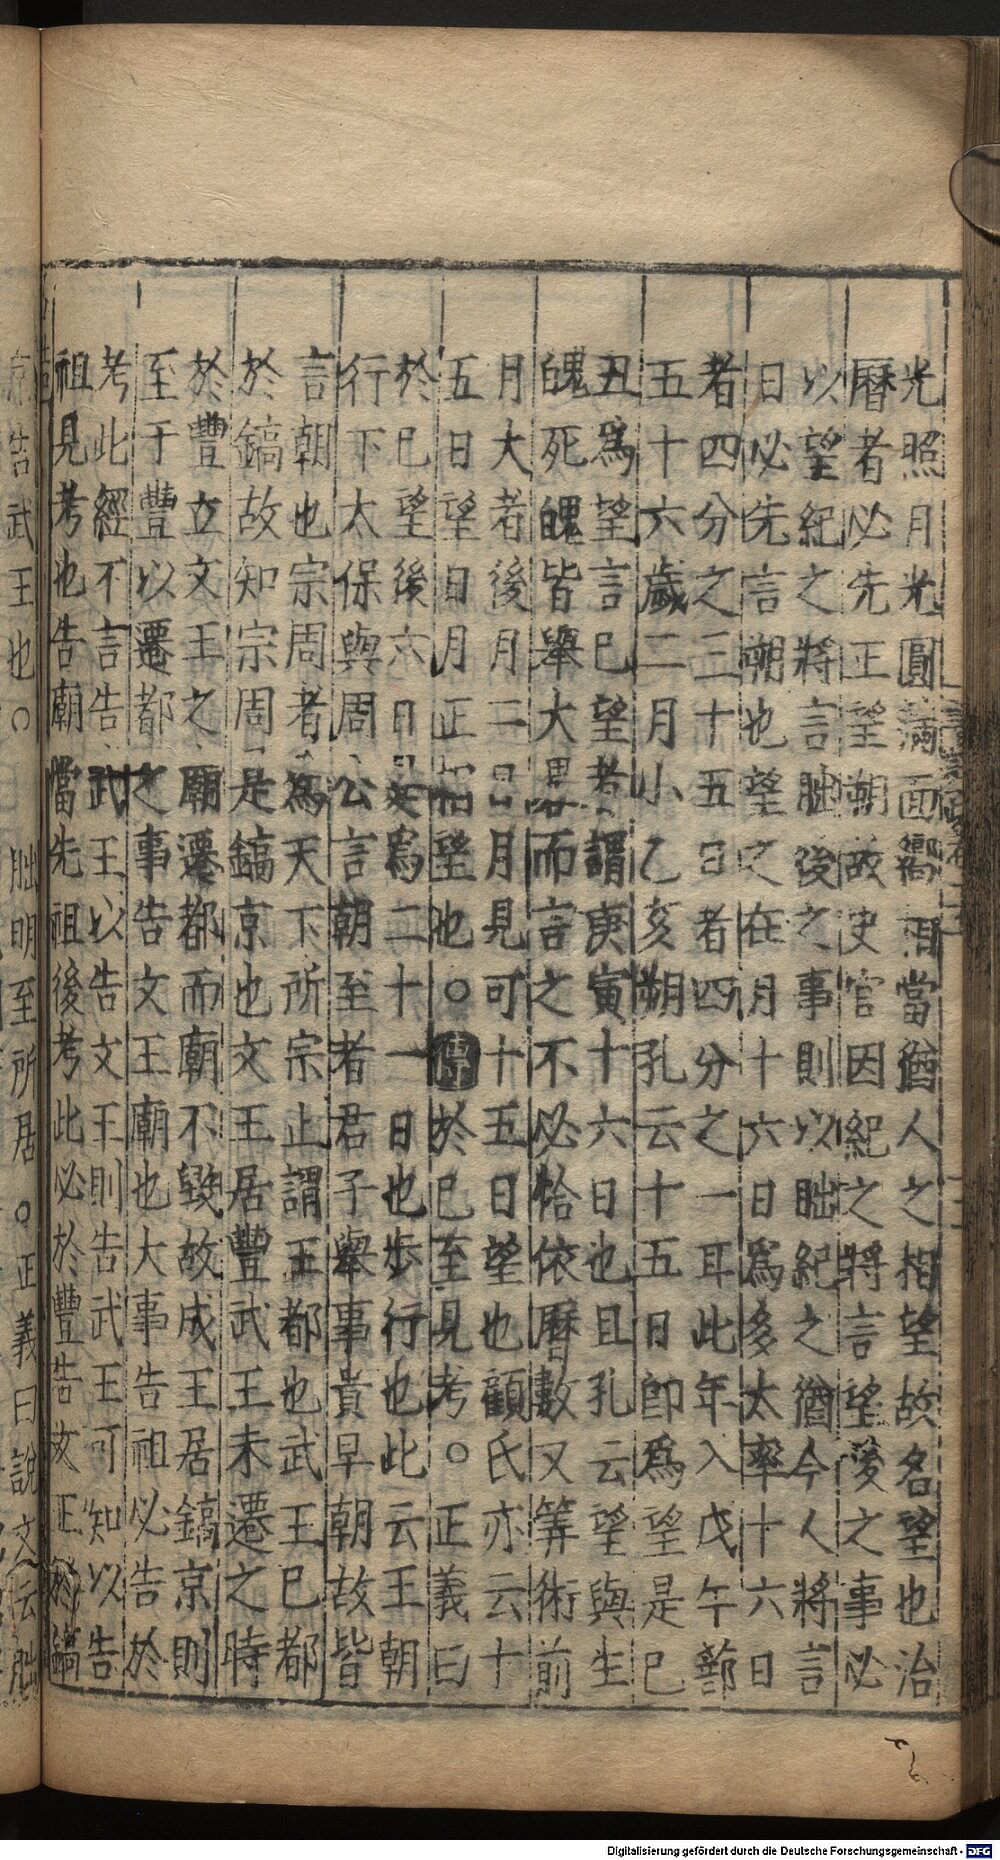 光照月光圓滿面嚮相當猶人之相望故名望也治
曆者必先正望朔故史官因紀之將言望後之事必
以望紀之將言朏後之事則以朏紀之猶今人將言
日必先言朔也望之在月十六日爲多太率十六日
者四分之三十五日者四分之一耳此年入戊午蔀
五十六歲二月小乙亥朔孔云十五日即爲望是巳
丑爲望言巳望者謂庚寅十六日也且孔云望與生
魄死魄皆舉大畧而言之不必恰依曆數又筭術前
月大者後月二日月見可十五日望也顧氏亦云十
五日望日月正相望也○傳於巳至見考○正義曰
於巳望後六日是爲二十一日也步行也此云王朝
行下太保與周公言朝至者君子舉事貴早朝故皆
言朝也宗周者爲天下所宗止謂王都也武王巳都
於鎬故知宗周是鎬京也文王居豐武王未遷之時
於豐立文王之廟遷都而廟不毀故成王居鎬京則
至于豐以遷都之事告文王廟也大事告祖必告於
考此經不言告武王以告文王則告武王可知以告
祖見考也告廟當先祖後考此必於豐告文王於鎬
京告武王也○ 朏明至所居○正義曰說文云朏
Digitalisierung gefördert durch die Deutsche Forschungsgemeinschaft - DFG